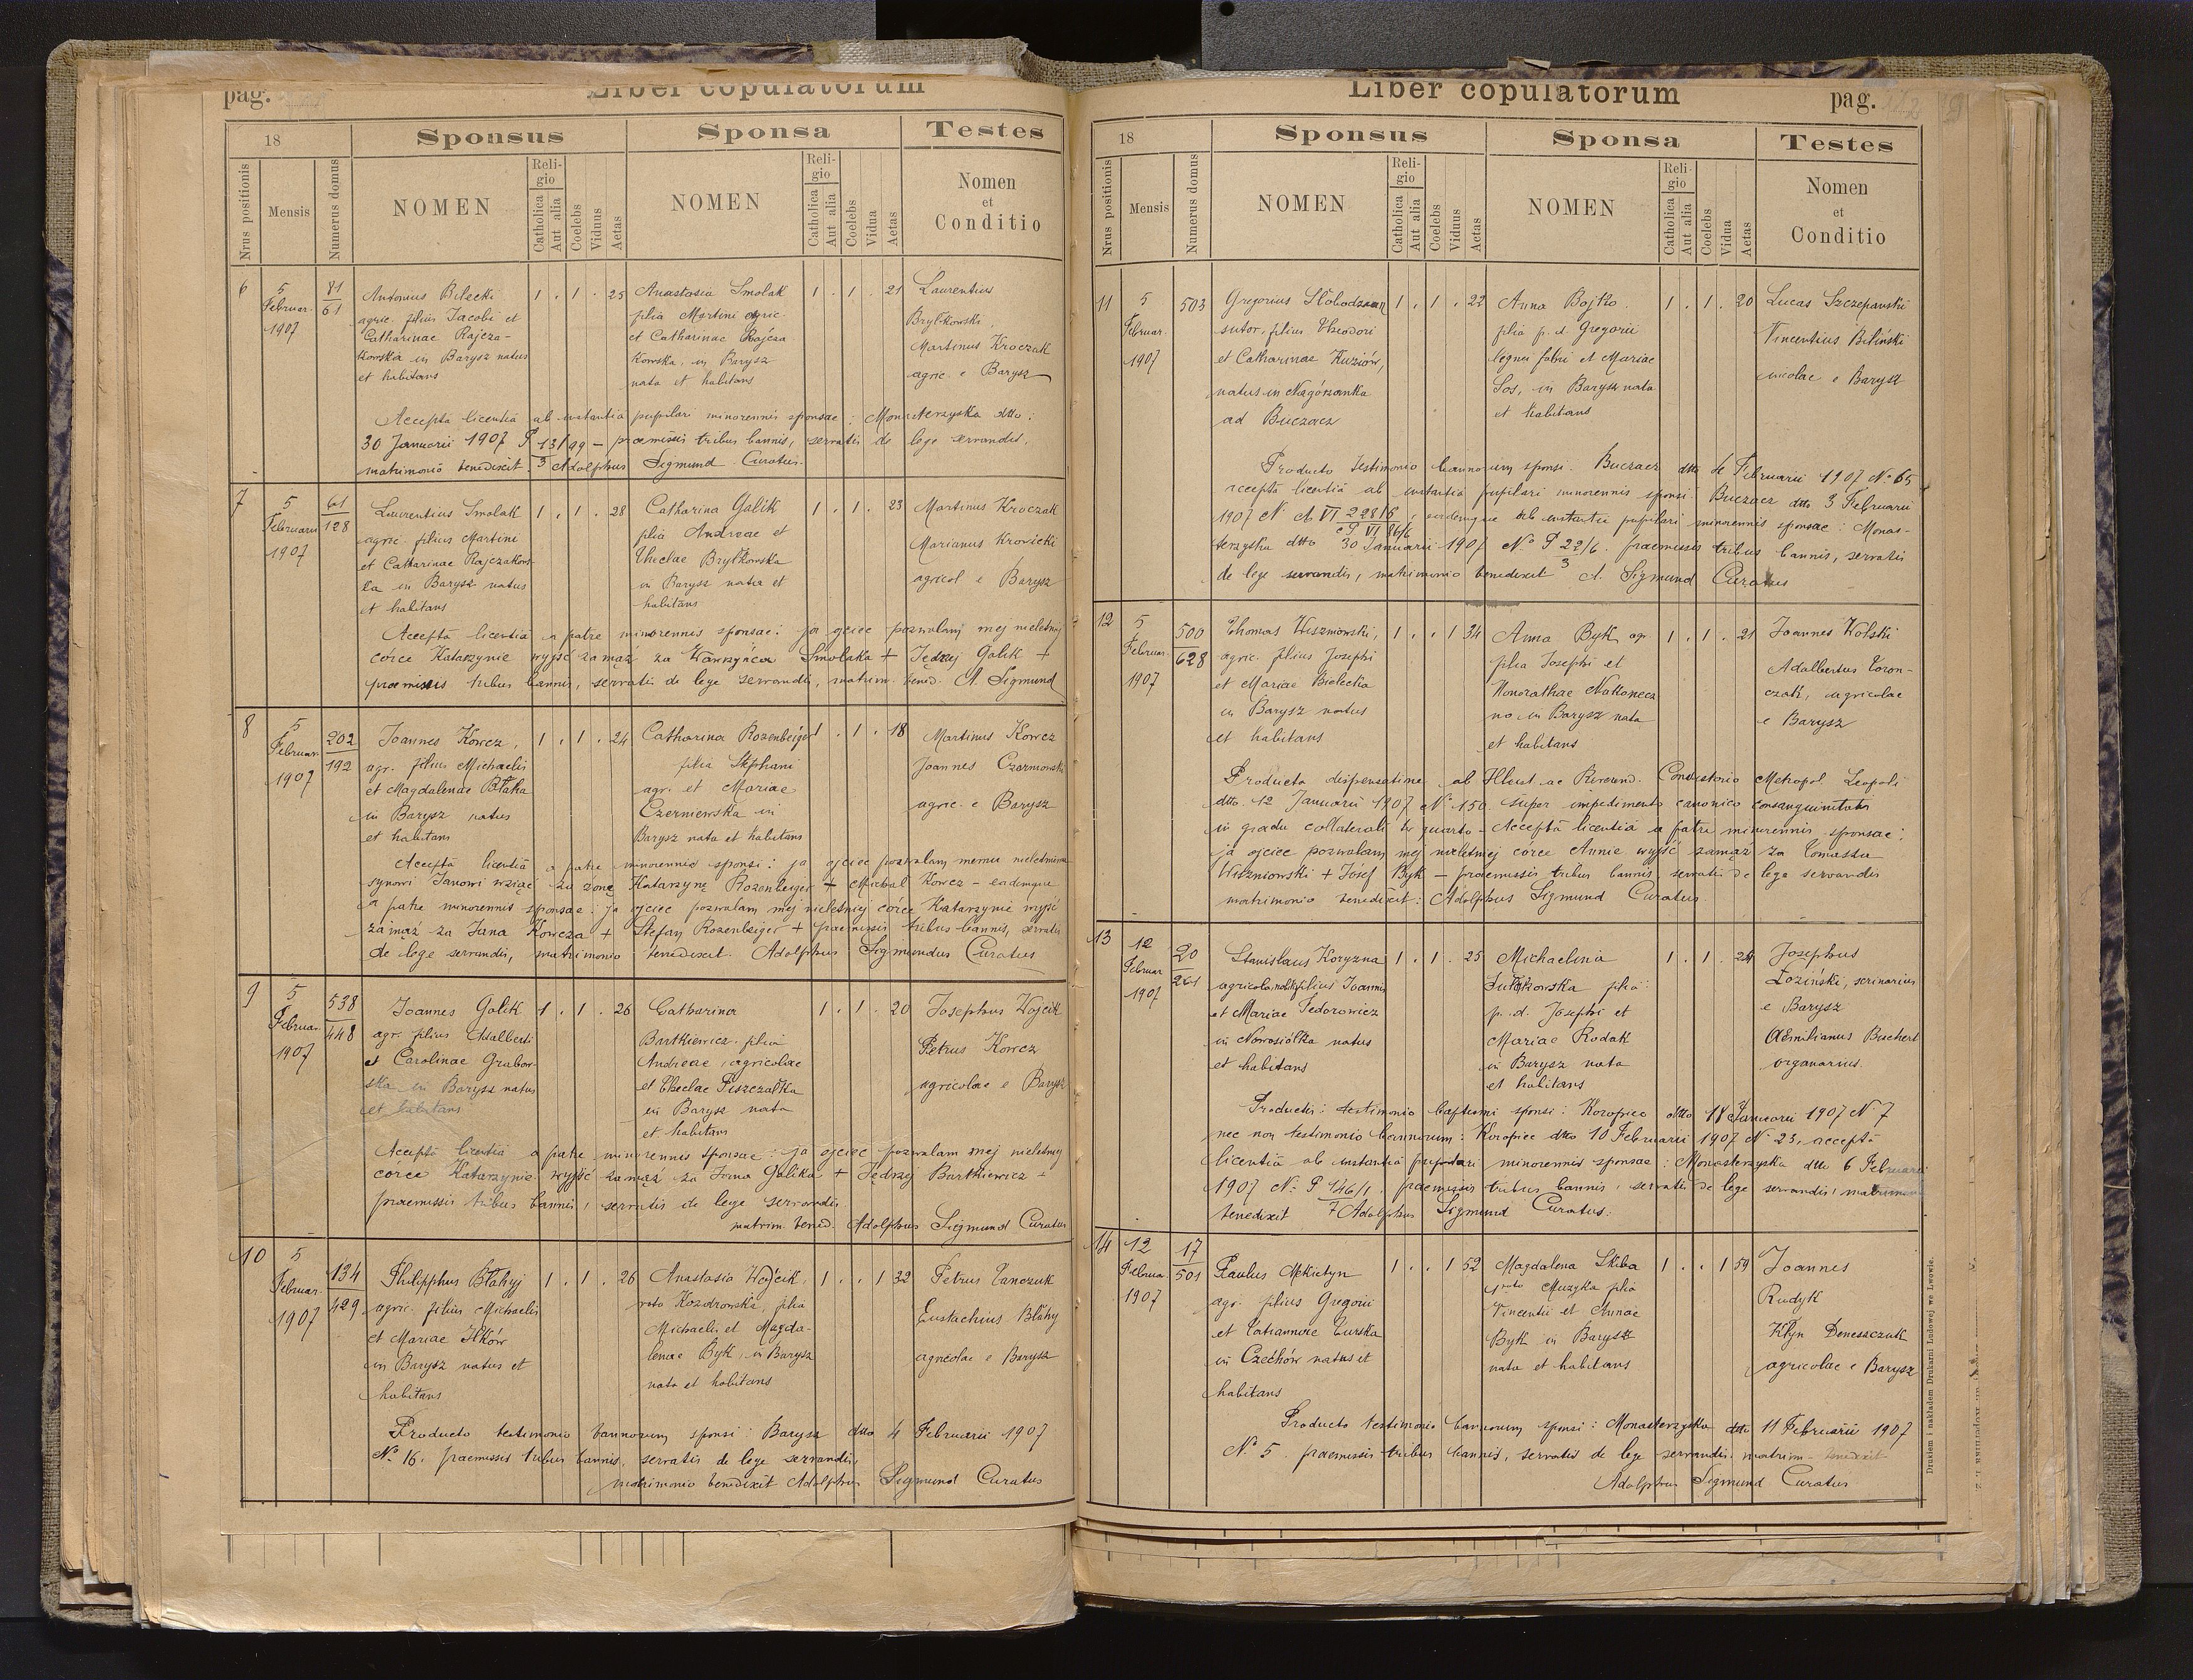 pag.
Liber copulatorum
18
Sponsus
Sponsa
Testes
Nrus positionis
Mensis
Numerus domus
NOMEN
Religio
Catholica
Aut alia
Coelebs
Viduus
Aetas
NOMEN
Religio
Catholica
Aut alia
Coelebs
Vidua
Aetas
Nomen
et
Conditio
6 5 Februar. 1907 81/61
Antonius Bilecki 1 . 1 . 25
agric. filius Jacobi et
Catharinae Rajcza-
kowska in Barysz natus
et habitans
Anastasia Smolak 1 . 1 . 21
filia Martini agric.
et Catharinae Rajcza
kowska, in Barysz
nata et habitans
Laurentius
Brylkowski,
Martinus Kroczak
agric. e Barysz
Acceptâ licentiâ ab instantia pupilari minorennis sponsae: Monasterzyska dtto:
30 Januarii 1907 P 13/99 3 – praemissis tribus bannis, servatis de lege servandis,
matrimonio benedixit Adolphus Sigmund Curatus.
7 5 Februarii 1907 61/128
Laurentius Smolak 1 . 1 . 28
agric. filius Martini
et Catharinae Rajczakows-
ka in Barysz natus
et habitans
Catharina Galik 1 . 1 . 23
filia Andreae et
Theclae Brylkowska
in Barysz nata et
habitans
Martinus Kroczak
Marianus Krowicki
agricol e Barysz
Acceptâ licentiâ a patre minorennis sponsae: ja ojciec pozwalam mej nieletniej
córce Katarzynie wyjść zamąż za Wawrzyńca Smolaka + Jędrzej Galik +
praemissis tribus bannis, servatis de lege servandis, matrim. bened. A. Sigmund
8 5 Februar. 1907 202/192
Joannes Kowcz, 1 . 1 . 24
agr. filius Michaelis
et Magdalenae Błaha
in Barysz natus
et habitans
Catharina Rozenbeiger 1 . 1 . 18
filia Stephani
agr. et Mariae
Czerniewska in
Barysz nata et habitans
Martinus Kowcz
Joannes Czerniowski
agric. e Barysz
Acceptâ licentiâ a patre minorennis sponsi: ja ojciec pozwalam memu nieletniemu
synowi Janowi wziąć za żonę Katarzynę Rozenbeiger + Michał Kowcz – eademque
a patre minorennis sponsae: ja ojciec pozwalam mej nieletniej córce Katarzynie wyjść
zamąż za Jana Kowcza + Stefan Rozenbeiger + praemissis tribus bannis, servatis
de lege servandis, matrimonio benedixit. Adolphus Sigmundus Curatus
9 5 Februar. 1907 538/448
Joannes Galik 1 . 1 . 26
agr. filius Adalberti
et Carolinae Grabow-
ska in Barysz natus
et habitans
Catharina 1 . 1 . 20
Bartkiewicz filia
Andreae, agricolae
et Theclae Piszczałka
in Barysz nata
et habitans
Josephus Wojcik
Petrus Kowcz
agricolae e Barysz
Acceptâ licentiâ a patre minorennis sponsae: ja ojciec pozwalam mej nieletniej
córce Katarzynie wyjść zamąż za Jana Galika + Jędrzej Bartkiewicz +
praemissis tribus bannis, servatis de lege servandis
matrim. bened. Adolphus Sigmund Curatus
10 5 Februar. 1907 134/429
Philipphus Błahyj 1 . 1 . 26
agric. filius Michaelis
et Mariae Ilków
in Barysz natus et
habitans
Anastasia Wojcik, 1 . . 1 32
nata Kozdrowska, filia
Michaelis et Magda-
lenae Byk, in Barysz
nata et habitans
Petrus Tanczuk
Eustachius Błahy
agricolae e Barysz
Producto testimonio bannorum sponsi: Barysz dtto 4 Februarii 1907
No 16. praemissis tribus bannis, servatis de lege servandis,
matrimonio benedixit Adolphus Sigmund Curatus
Liber copulatorum
pag.
18
Sponsus
Sponsa
Testes
Nrus positionis
Mensis
Numerus domus
NOMEN
Religio
Catholica
Aut alia
Coelebs
Viduus
Aetas
NOMEN
Religio
Catholica
Aut alia
Coelebs
Vidua
Aetas
Nomen
et
Conditio
11 5 Februar. 1907 503
Gregorius Słobodzian 1 . 1 . 22
sutor, filius Theodori
et Catharinae Kuziów,
natus in Nagórzanka
ad Buczacz
Anna Bojko 1 . 1 . 20
filia p. d. Gregorii
lignei fabri et Mariae
Sos, in Barysz nata
et habitans
Lucas Szczepanski
Vincentius Bilinski
incolae e Barysz
Producto testimonio bannorum sponsi. Buczacz dtto 4 Februarii 1907 No 65
acceptâ licentiâ ab instantia pupilari minorennis sponsi: Buczacz dtto 3 Februarii
1907 N A VI 228/6 P VI 86/6, eademque ab instantia pupilari minorennis sponsae: Monas-
terzyska dtto 30 Januarii 1907 No P 22/6 3. praemissis tribus bannis, servatis
de lege servandis, matrimonio benedixit A. Sigmund Curatus
12 5 Februar. 1907 500/628
Thomas Wiszniowski, 1 . . 1 34
agric. filius Josephi
et Mariae Bielecka
in Barysz natus
et habitans
Anna Byk agr. 1 . 1 . 21
filia Josephi et
Honorathae Nakonecz
na in Barysz nata
et habitans
Joannes Wolski
Adalbertus Woron-
czak, agricolae
e Barysz
Producta dispensatione ab Illust. ac Reverend. Consistorio Metropol. Leopoli
dtto. 12 Januarii 1907 No 150. super impedimento canonico consanguinitatis
in gradu collaterali quarto – Acceptâ licentiâ a patre minorennis sponsae:
ja ojciec pozwalam mej nieletniej córce Annie wyjść zamąż za Tomasza
Wiszniowski + Josef Byk – praemissis tribus bannis, servatis de lege servandis
matrimonio benedixit: Adolphus Sigmund Curatus.
13 12 Februar. 1907 20/261
Stanislaus Koryzna 1 . 1 . 25
agricola, filius Joannis
et Mariae Fedorowicz
in Nowosiółka natus
et habitans
Michaelina 1 . 1 . 24
Sułkowska filia
p. d. Josephi et
Mariae Rodak
in Barysz nata
et habitans
Josephus
Łoziński, scrinarius
e Barysz
Aemilianus Buchert
organarius.
Productis: testimonio baptismi sponsi: Koropiec dtto 18 Januarii 1907 N 7
nec non testimonio bannorum: Koropiec dtto 10 Februarii 1907 No 23, acceptâ
licentiâ ab instantia pupilari minorennis sponsae: Monasterzyska dtto 6 Februarii
1907 No P 146/1 7. praemissis tribus bannis, servatis de lege servandis, matrimonio
benedixit Adolphus Sigmund Curatus.
14 12 Februar. 1907 17/501
Paulus Mekietyn 1 . . 1 52
agr. filius Gregorii
et Tatiannae Turska
in Czechów natus et
habitans
Magdalena Skiba 1 . . 1 59
Muzyka filia
Vincentii et Annae
Byk in Barysz
nata et habitans
Joannes
Rudyk
Kłyn Deneszczuk
agricolae e Barysz
Producto testimonio bannorum sponsi: Monasterzyska dtto 11 Februarii 1907
No 5. praemissis tribus bannis, servatis de lege servandis, matrim– benedixit
Adolphus Sigmund Curatus
Drukiem i nakładem Drukarni Ludowej we Lwowie.